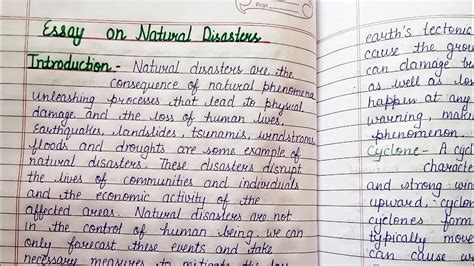 Page
Essay on Natural Disasters
Introduction - Natural disasters are the
consequence of natural phenomena
unleashing processes that lead to physical
damage and the loss of human lives.
Earthquakes, landslides, tsunamis, windstroms,
floods and droughts are some example of
natural disasters. These disasters disrupt
the lives of communities and individuals
and the economic activity of the
affected areas. Natural disasters are not
in the control of human being. we can
only forecast these events and take
necessary measures to mitigate the loss
earth's tectonic
cause the grou
can damage bu
as well as los
happen at any
warning, maki
phenomenon.
Cyclone - A cycl
character
and strong win
upward, cyclon
cyclones form
typically move
can cause